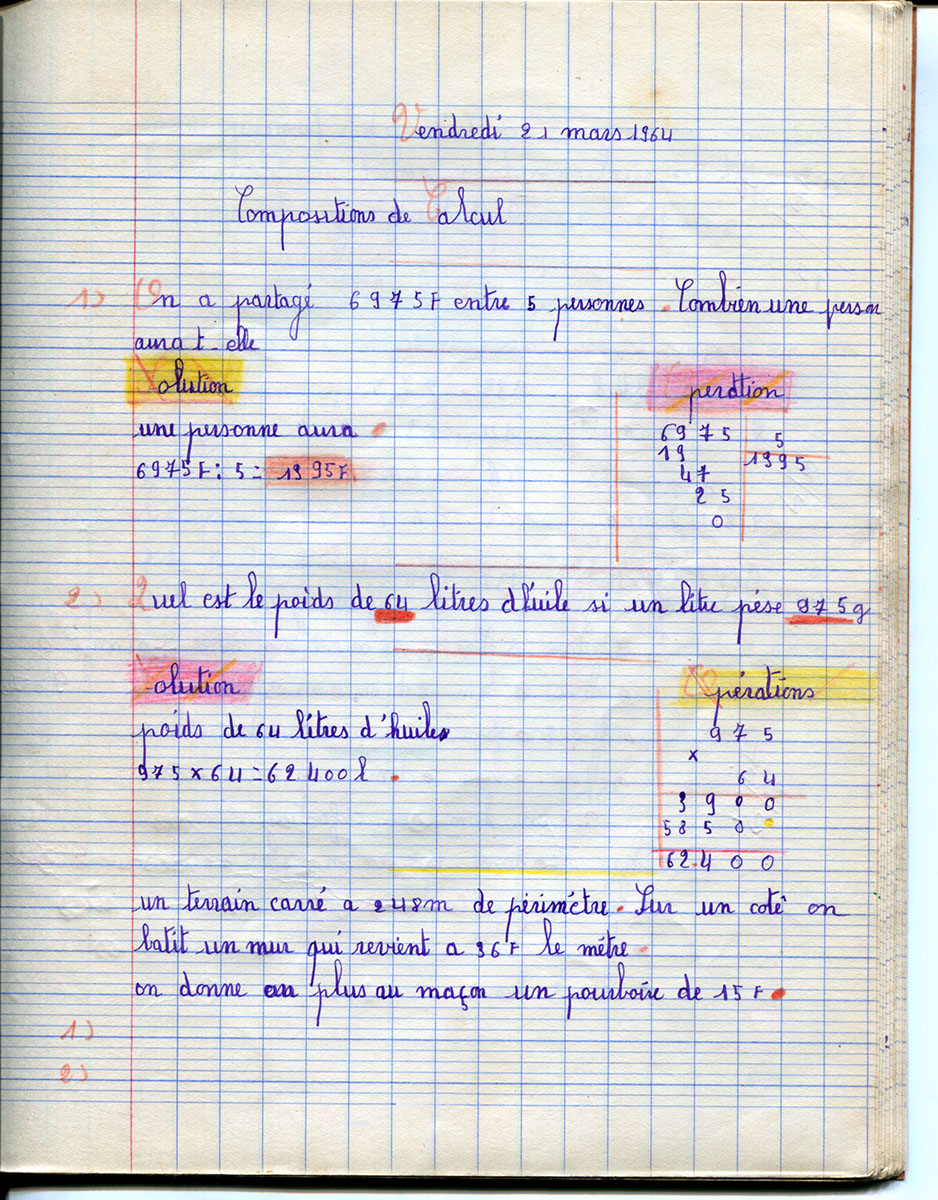 Vendredi 21 mars 1964
Compositions de Calcul
1) On a partagé 6975F entre 5 personnes. Combien une person
aura t-elle
Solution
Opération
une personne aura
6975F : 5 = 1395F
6975 5
19 1395
47
25
0
2) Quel est le poids de 64 litres d'huile si un litre pèse 975g
Solution
Opérations
poids de 64 litres d'huiles
975 x 64 = 62400l.
975
x
64
3900
5850
62.400
un terrain carré a 248m de périmétre. Sur un coté on
batit un mur qui revient a 36F le métre
on donne en plus au maçon un pourboire de 15F.
1)
2)